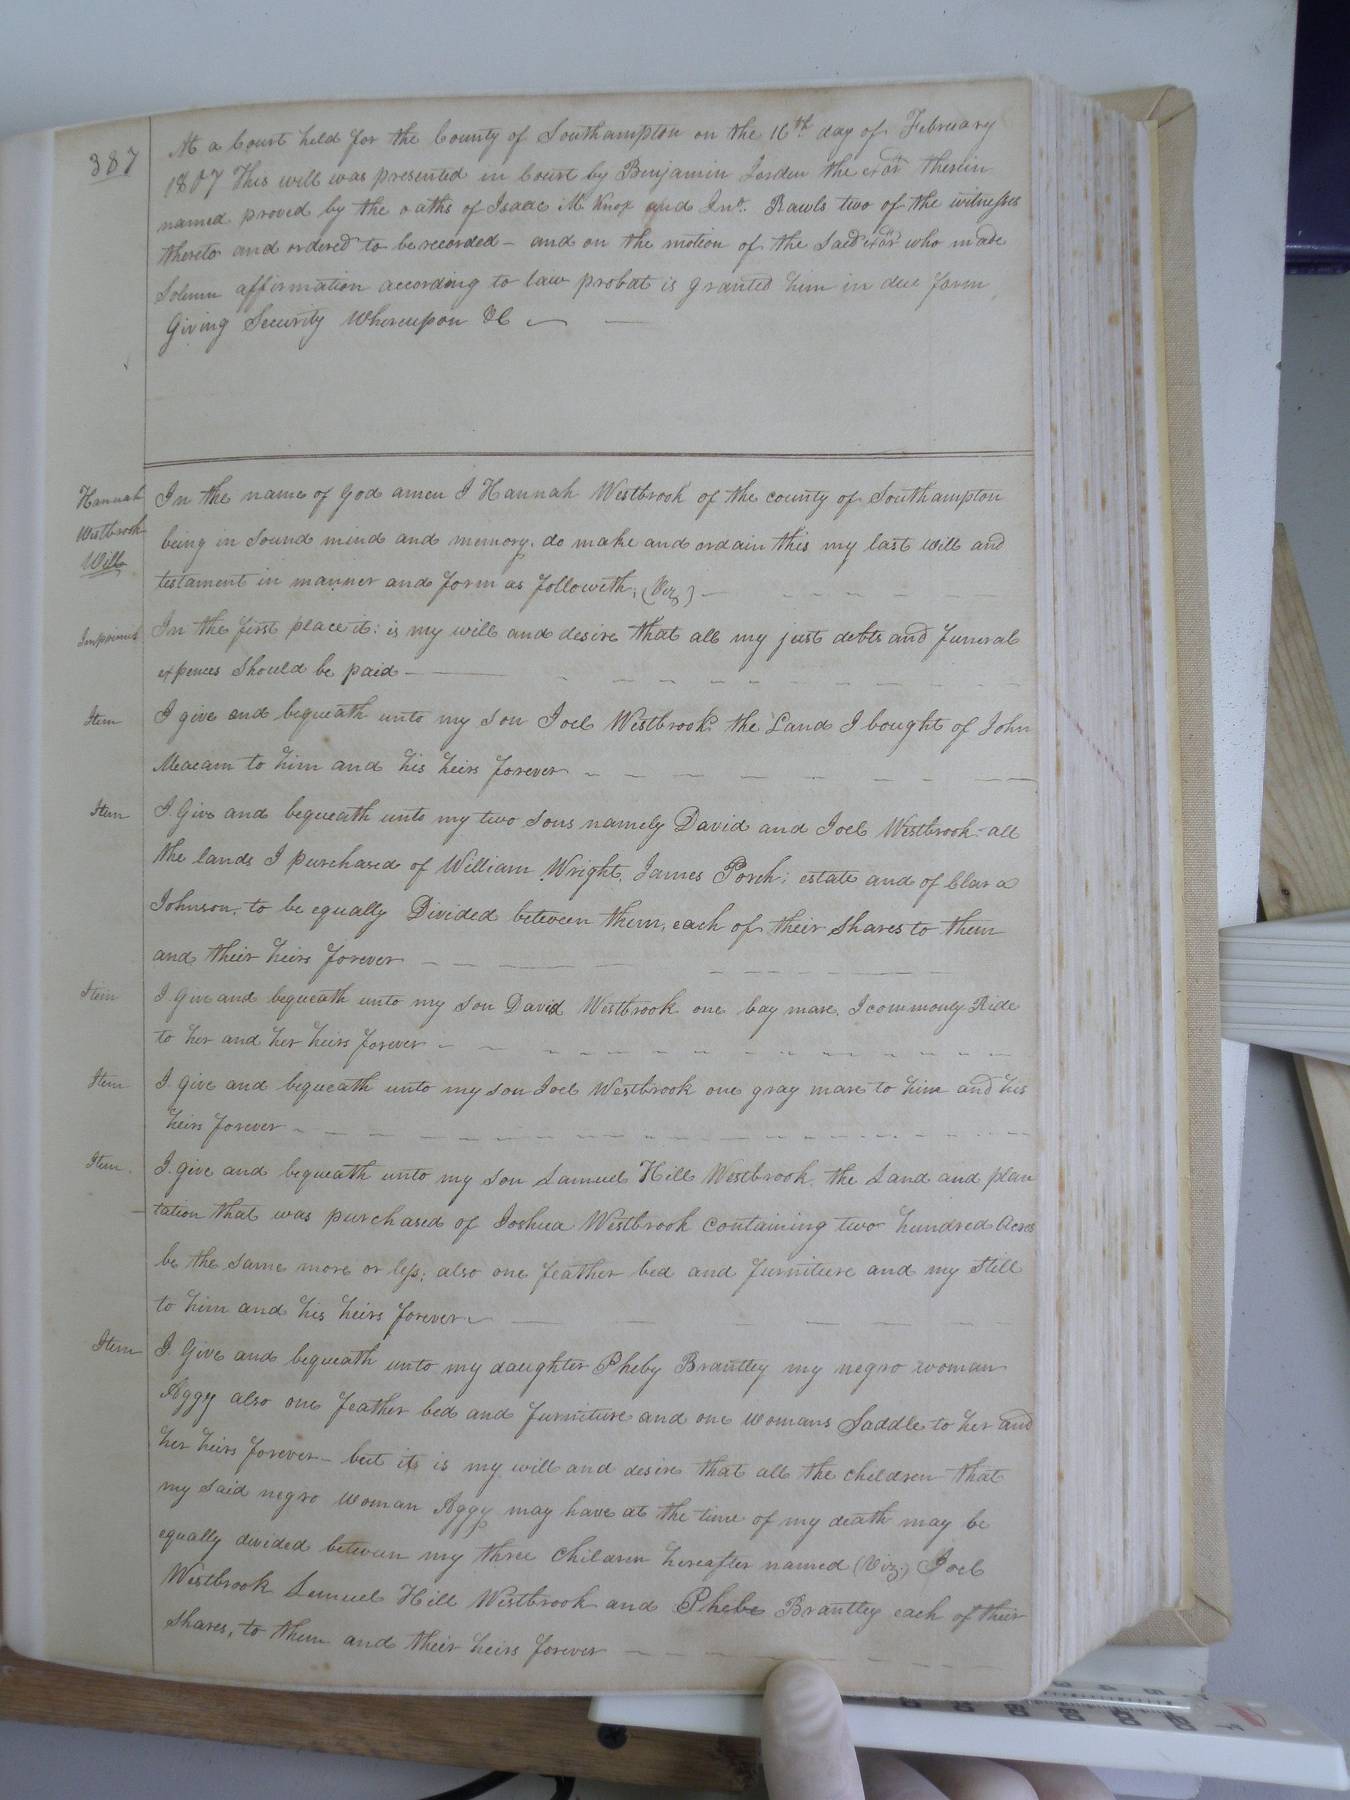 387
At a Court held for the County of Southampton on the 16th day of February
1807 This will was presented in Court by Benjamin Jorden the exor therein
named proved by the oaths of Isaac Mc Knox and Jno. Rawls two of the witnesses
thereto and ordered to be recorded - and on the motion of the said exor who made
Solemn affirmation according to law probat is granted him in due form
Giving Security Whereupon &C
Hannah
Westbrook
Will
In the name of God amen I Hannah Westbrook of the county of Southampton
being in sound mind and memory. do make and ordain this my last will and
testament in manner and form as followeth, (Viz)
Imprimis
In the first place it: is my will and desire that all my just debts and funeral
expences should be paid
Item
I give and bequeath unto my son Joel Westbrook the Land I bought of John
Meacam to him and his heirs forever
Item
I Give and bequeath unto my two sons namely David and Joel Westbrook all
the lands I purchased of William Wright, James Porch; estate and of Clara
Johnson, to be equally Divided between them, each of their shares to them
and their heirs forever
Item
I Give and bequeath unto my son David Westbrook one bay mare, I commonly Ride
to her and her heirs forever
Item
I give and bequeath unto my son Joel Westbrook one gray mare to him and his
heirs forever
Item
I give and bequeath unto my son Samuel Hill Westbrook, the Land and plan
tation that was purchased of Joshua Westbrook containing two hundred acres
be the same more or less; also one feather bed and furniture and my Still
to him and his heirs forever
Item
I Give and bequeath unto my daughter Pheby Brantley my negro woman
Aggy also one feather bed and furniture and one womans Saddle to her and
her heirs forever - but it is my will and desire that all the children that
my said negro woman Aggy may have at the time of my death may be
equally divided between my three children hereafter named (Viz.) Joel
Westbrook Lemuel Hill Westbrook and Phebe Brantley each of their
shares, to them and their heirs forever